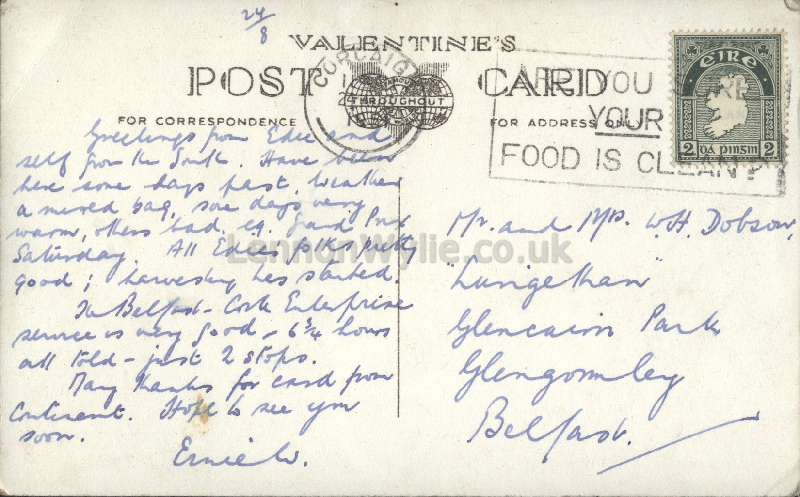 24/8
VALENTINE'S
POST CARD
CORCAIGH
THROUGHOUT
ARE YOU SURE
YOUR
FOOD IS CLEAN?
EIRE
2 DA PINSIN 2
FOR CORRESPONDENCE
FOR ADDRESS ONLY
Greetings from Edie and
self from the South. Have been
here some days past. Weather
a mixed bag, some days very
warm, others bad, e.g. Grand Prix
Saturday. All Edie's folks pretty
good; harvesting has started.
The Belfast-Cork Enterprise
service is very good - 6¾ hours
all told - just 2 stops.
Many thanks for card from
Continent. Hope to see you
soon.
Ernie W.
Mr. and Mrs. W.H. Dobson,
Glencairn Park
Glengormley
Belfast.
LennonWylie.co.uk